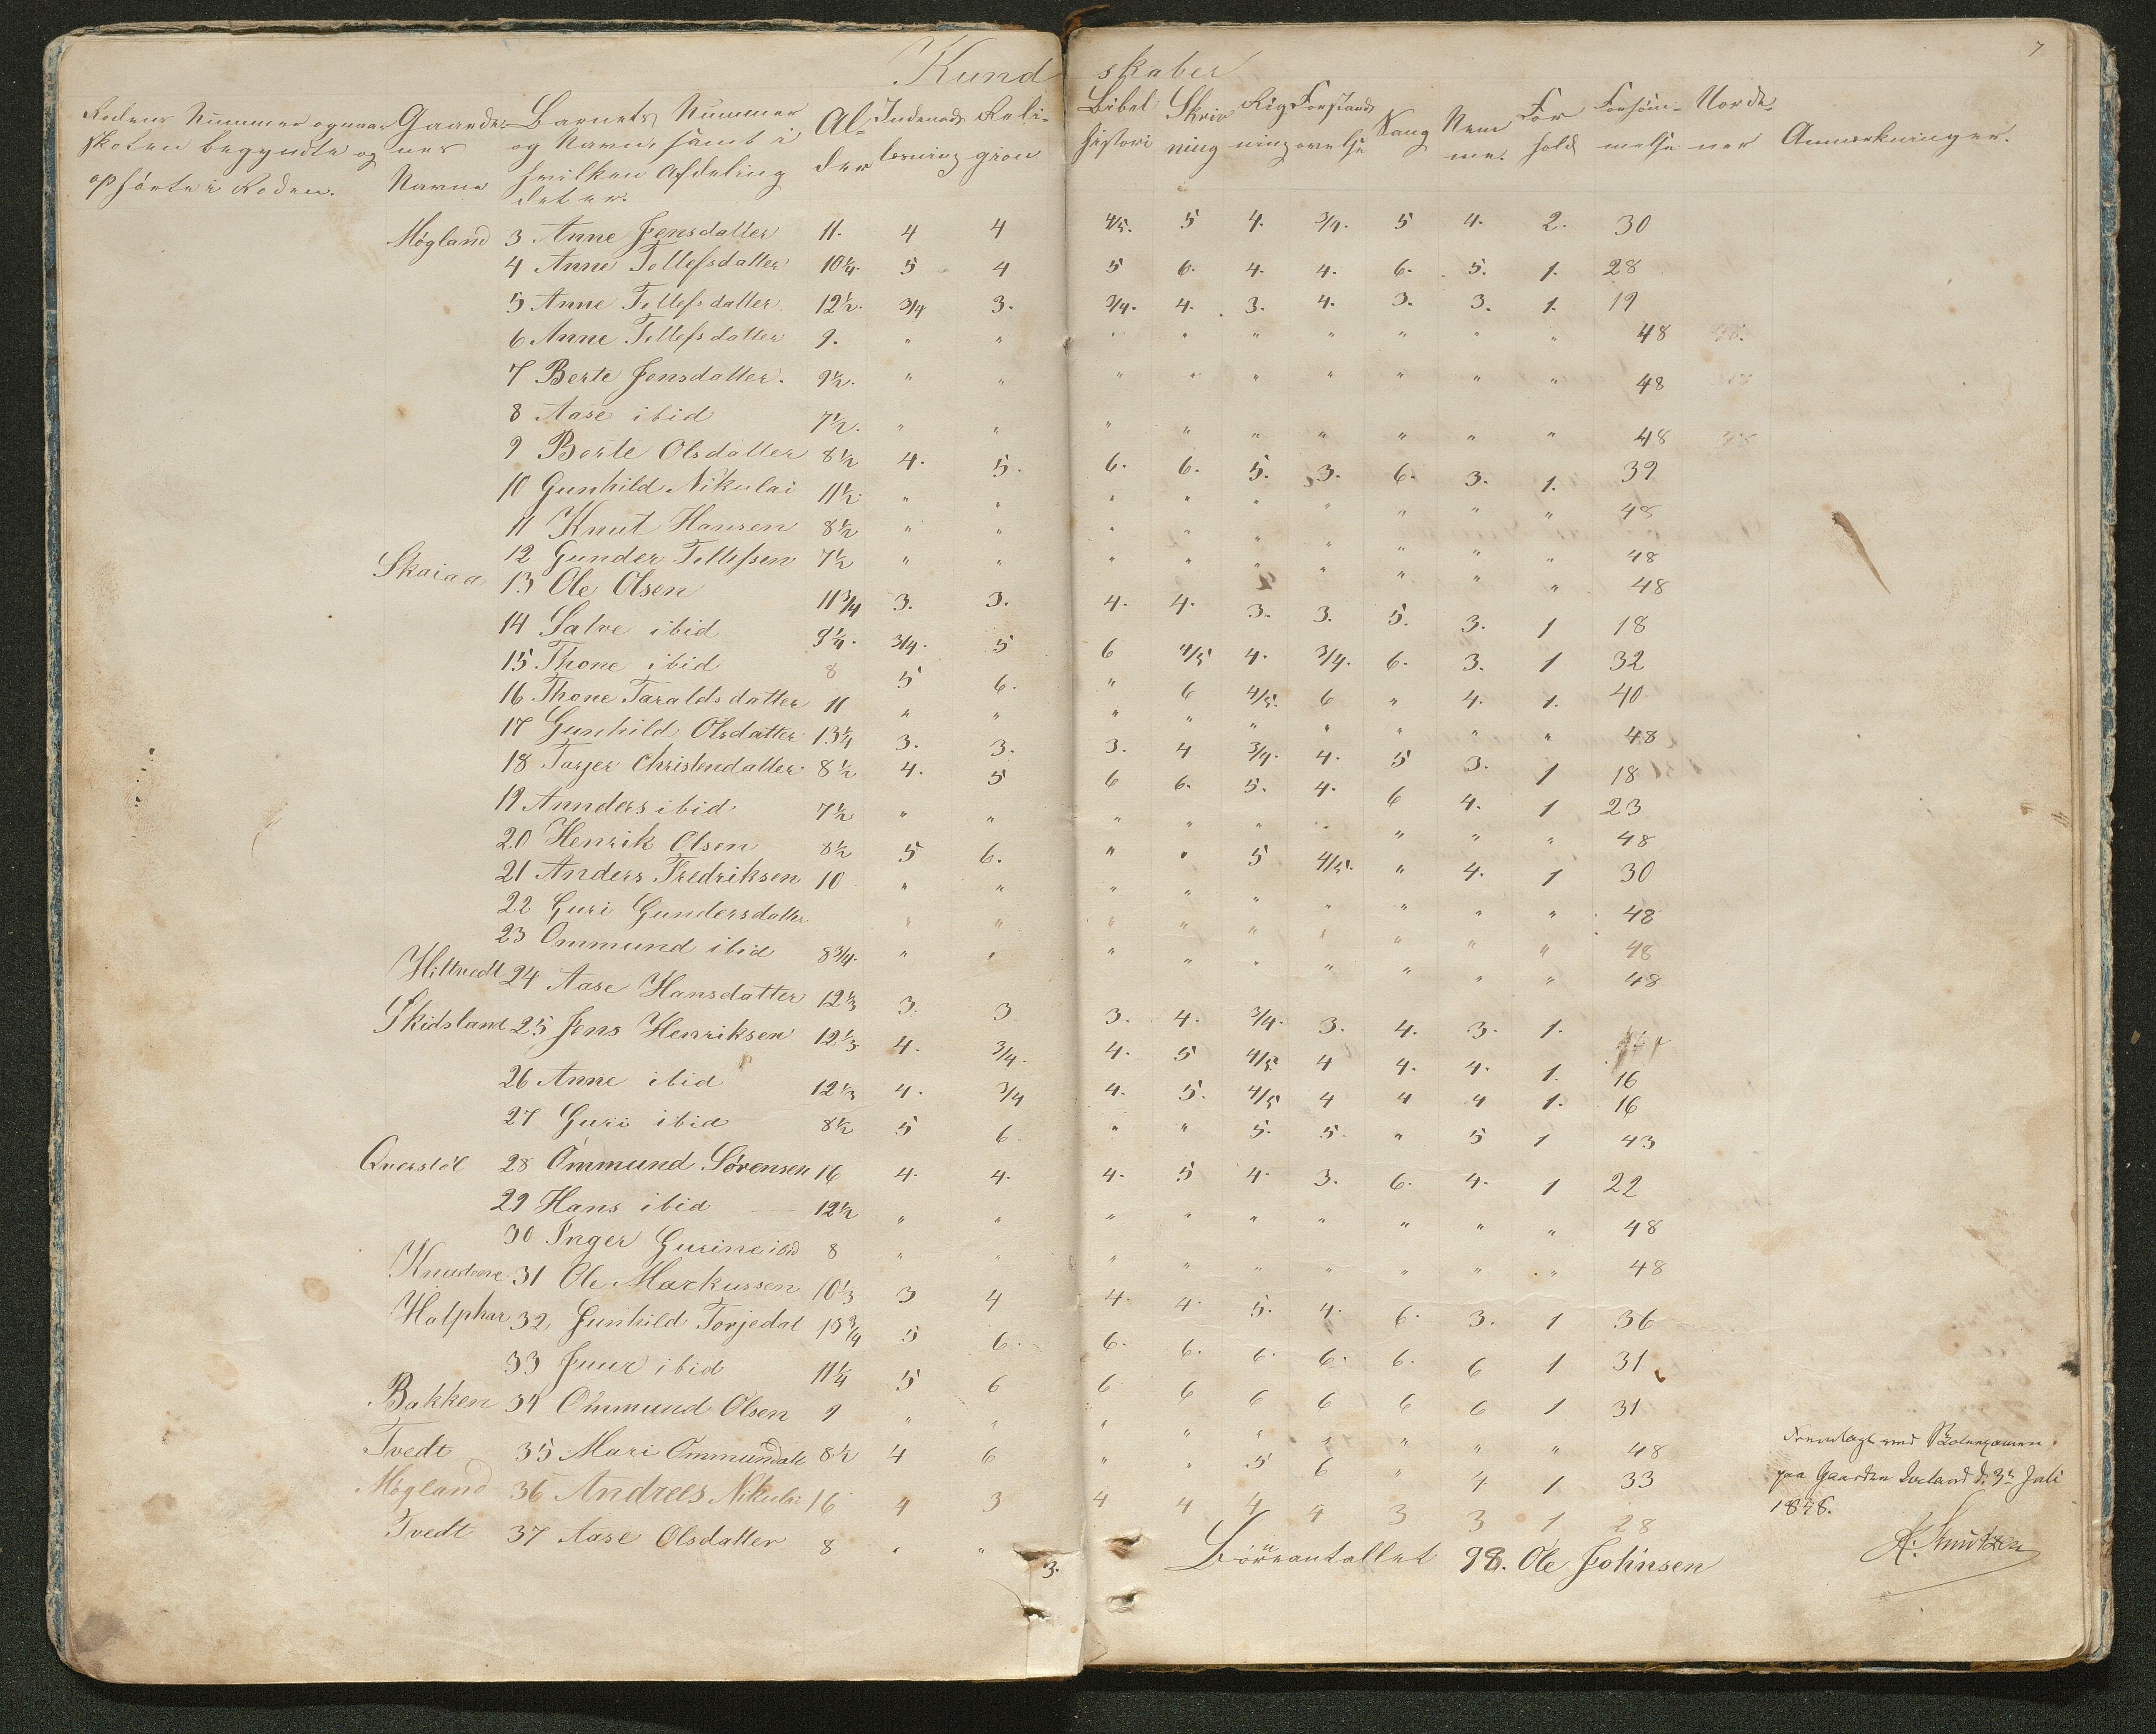 7
Kundskaber
Rodens Nummer og naar Skolen begyndte og ophørte i Roden. Gaardenes Navne Barnets Nummer og Navn, samt i hvilken Afdeling det er. Alder Indenadslæsning Religion Bibelhistori Skrivning Rigning Forstandsøvelse Sang Nemme. Forhold Forsømmelse Norder Anmærkninger.
Møgland 3 Anne Jensdatter 11. 4 4 4/5. 5 4. 3/4. 5 4. 2. 30
4 Anne Tellefsdatter 10 1/4. 5 4 5 6. 4. 4. 6. 5. 1. 28
5 Anne Tellefsdatter 12 1/2. 3/4 3. 3/4. 4. 3. 4. 3. 3. 1. 19
6 Anne Tellefsdatter 9. " " " " " " " " " 48
7 Berte Jensdatter. 9 1/2. " " " " " " " " " 48
8 Aase ibid 7 1/2. " " " " " " " " " 48
9 Berte Olsdatter 8 1/2 4. 5. 6. 6. 5. 3. 6. 3. 1. 39
10 Gunhild Nikulai 11 1/2. " " " " " " " " " 48
11 Knut Hansen 8 1/2 " " " " " " " " " 48
12 Gunder Tellefsen 7 1/2 " " " " " " " " " 48
Skaiaa 13 Ole Olsen 11 3/4 3. 3. 4. 4. 3. 3. 5. 3. 1 18
14 Salve ibid 9 1/4. 3/4. 5 6 4/5 4. 3/4. 6. 3. 1 32
15 Thone ibid 8 5 6. " 6 4/5. 6 " 4. 1. 40
16 Thone Taraldsdatter 11 " " " " " " " " " 48
17 Gunhild Olsdatter 13 1/4 3. 3. 3. 4 3/4. 4. 5 3. 1 18
18 Tarjer Christendatter 8 1/2 4. 5 6 6. 5. 4. 6 4. 1 23
19 Annders ibid 7 1/2 " " " " " " " " " 48
20 Henrik Olsen 8 1/2 5 6. " " 5 4/5. " 4. 1 30
21 Anders Fredriksen 10 " " " " " " " " " 48
22 Guri Gundersdatter " " " " " " " " " 48
23 Ommund ibid 8 3/4. " " " " " " " " " 48
Hiltvedt 24 Aase Hansdatter 12 1/3 3. 3 3. 4. 3/4. 3. 4. 3. 1.
Skidsland 25 Jens Henriksen 12 1/3 4. 3/4. 4. 5 4/5 4 4. 4. 1. 16
26 Anne ibid 12 1/3 4. 3/4 4. 5. 4/5 4 4 4 1. 16
27 Guri ibid 8 1/2 5 6. " " 5. 5. " 5 1 43
Qverstöl 28 Ommund Sørensen 16 4. 4. 4. 5 4. 3. 6. 4. 1 22
29 Hans ibid 12 1/2 " " " " " " " " " 48
30 Inger Gurine ibid 8 " " " " " " " " " 48
31 Ole Markussen 10 1/3 3 4 4. 4. 5. 4. 6. 3. 1 36
32 Gunhild Torjedat 13 3/4 5 6. 6. 6. 6. 6. 6. 6 1 31
33 Juur ibid 11 1/4 5 6 6 6 6 6 6 6 1 31
Bakken 34 Ommund Olsen 9 " " " " " " " " " 48
Tvedt 35 Mari Ommundatt 8 1/2 4 6 " " 5 6 " 4. 1 33
Møgland 36 Andrees Nikulai 16 4 3 4 4 4 4 3 3 1 28
Tvedt 37 Aase Olsdatter 8 " "
3.
Börneantallet 98. Ole Johnsen
Fremlagt ved Skolexamen
paa Gaarden Iveland d. 3die Juli
1848.
K. Knutzen